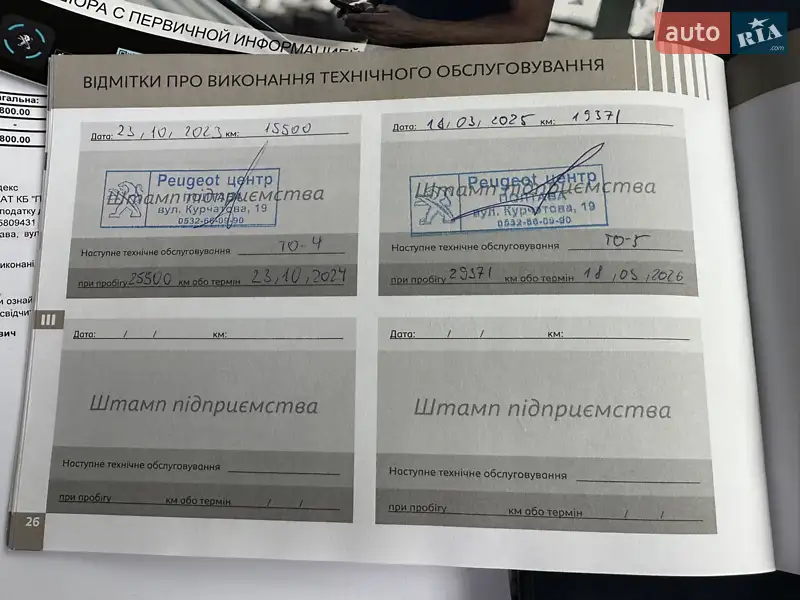 ЮРА С ПЕРВИЧНОЙ ИНФОРМАЦИЕЙ
auto RIA .com
ВІДМІТКИ ПРО ВИКОНАННЯ ТЕХНІЧНОГО ОБСЛУГОВУВАННЯ
агальна:
800.00
-
800.00
Дата: 23, 10, 2023 км: 15500
Peugeot центр
ПОЛТАВА
вул. Курчатова, 19
0532-66-09-90
Штамп підприємства
Наступне технічне обслуговування ТО-4
при пробігу 25500 км або термін 23, 10, 2024
Дата: 18, 03, 2025 км: 19371
Peugeot центр
ПОЛТАВА
вул. Курчатова, 19
0532-66-09-90
Штамп підприємства
Наступне технічне обслуговування ТО-5
при пробігу 29371 км або термін 18, 03, 2026
III
Дата: / / км:
Штамп підприємства
Наступне технічне обслуговування
при пробігу км або термін / /
Дата: / / км:
Штамп підприємства
Наступне технічне обслуговування
при пробігу км або термін / /
26